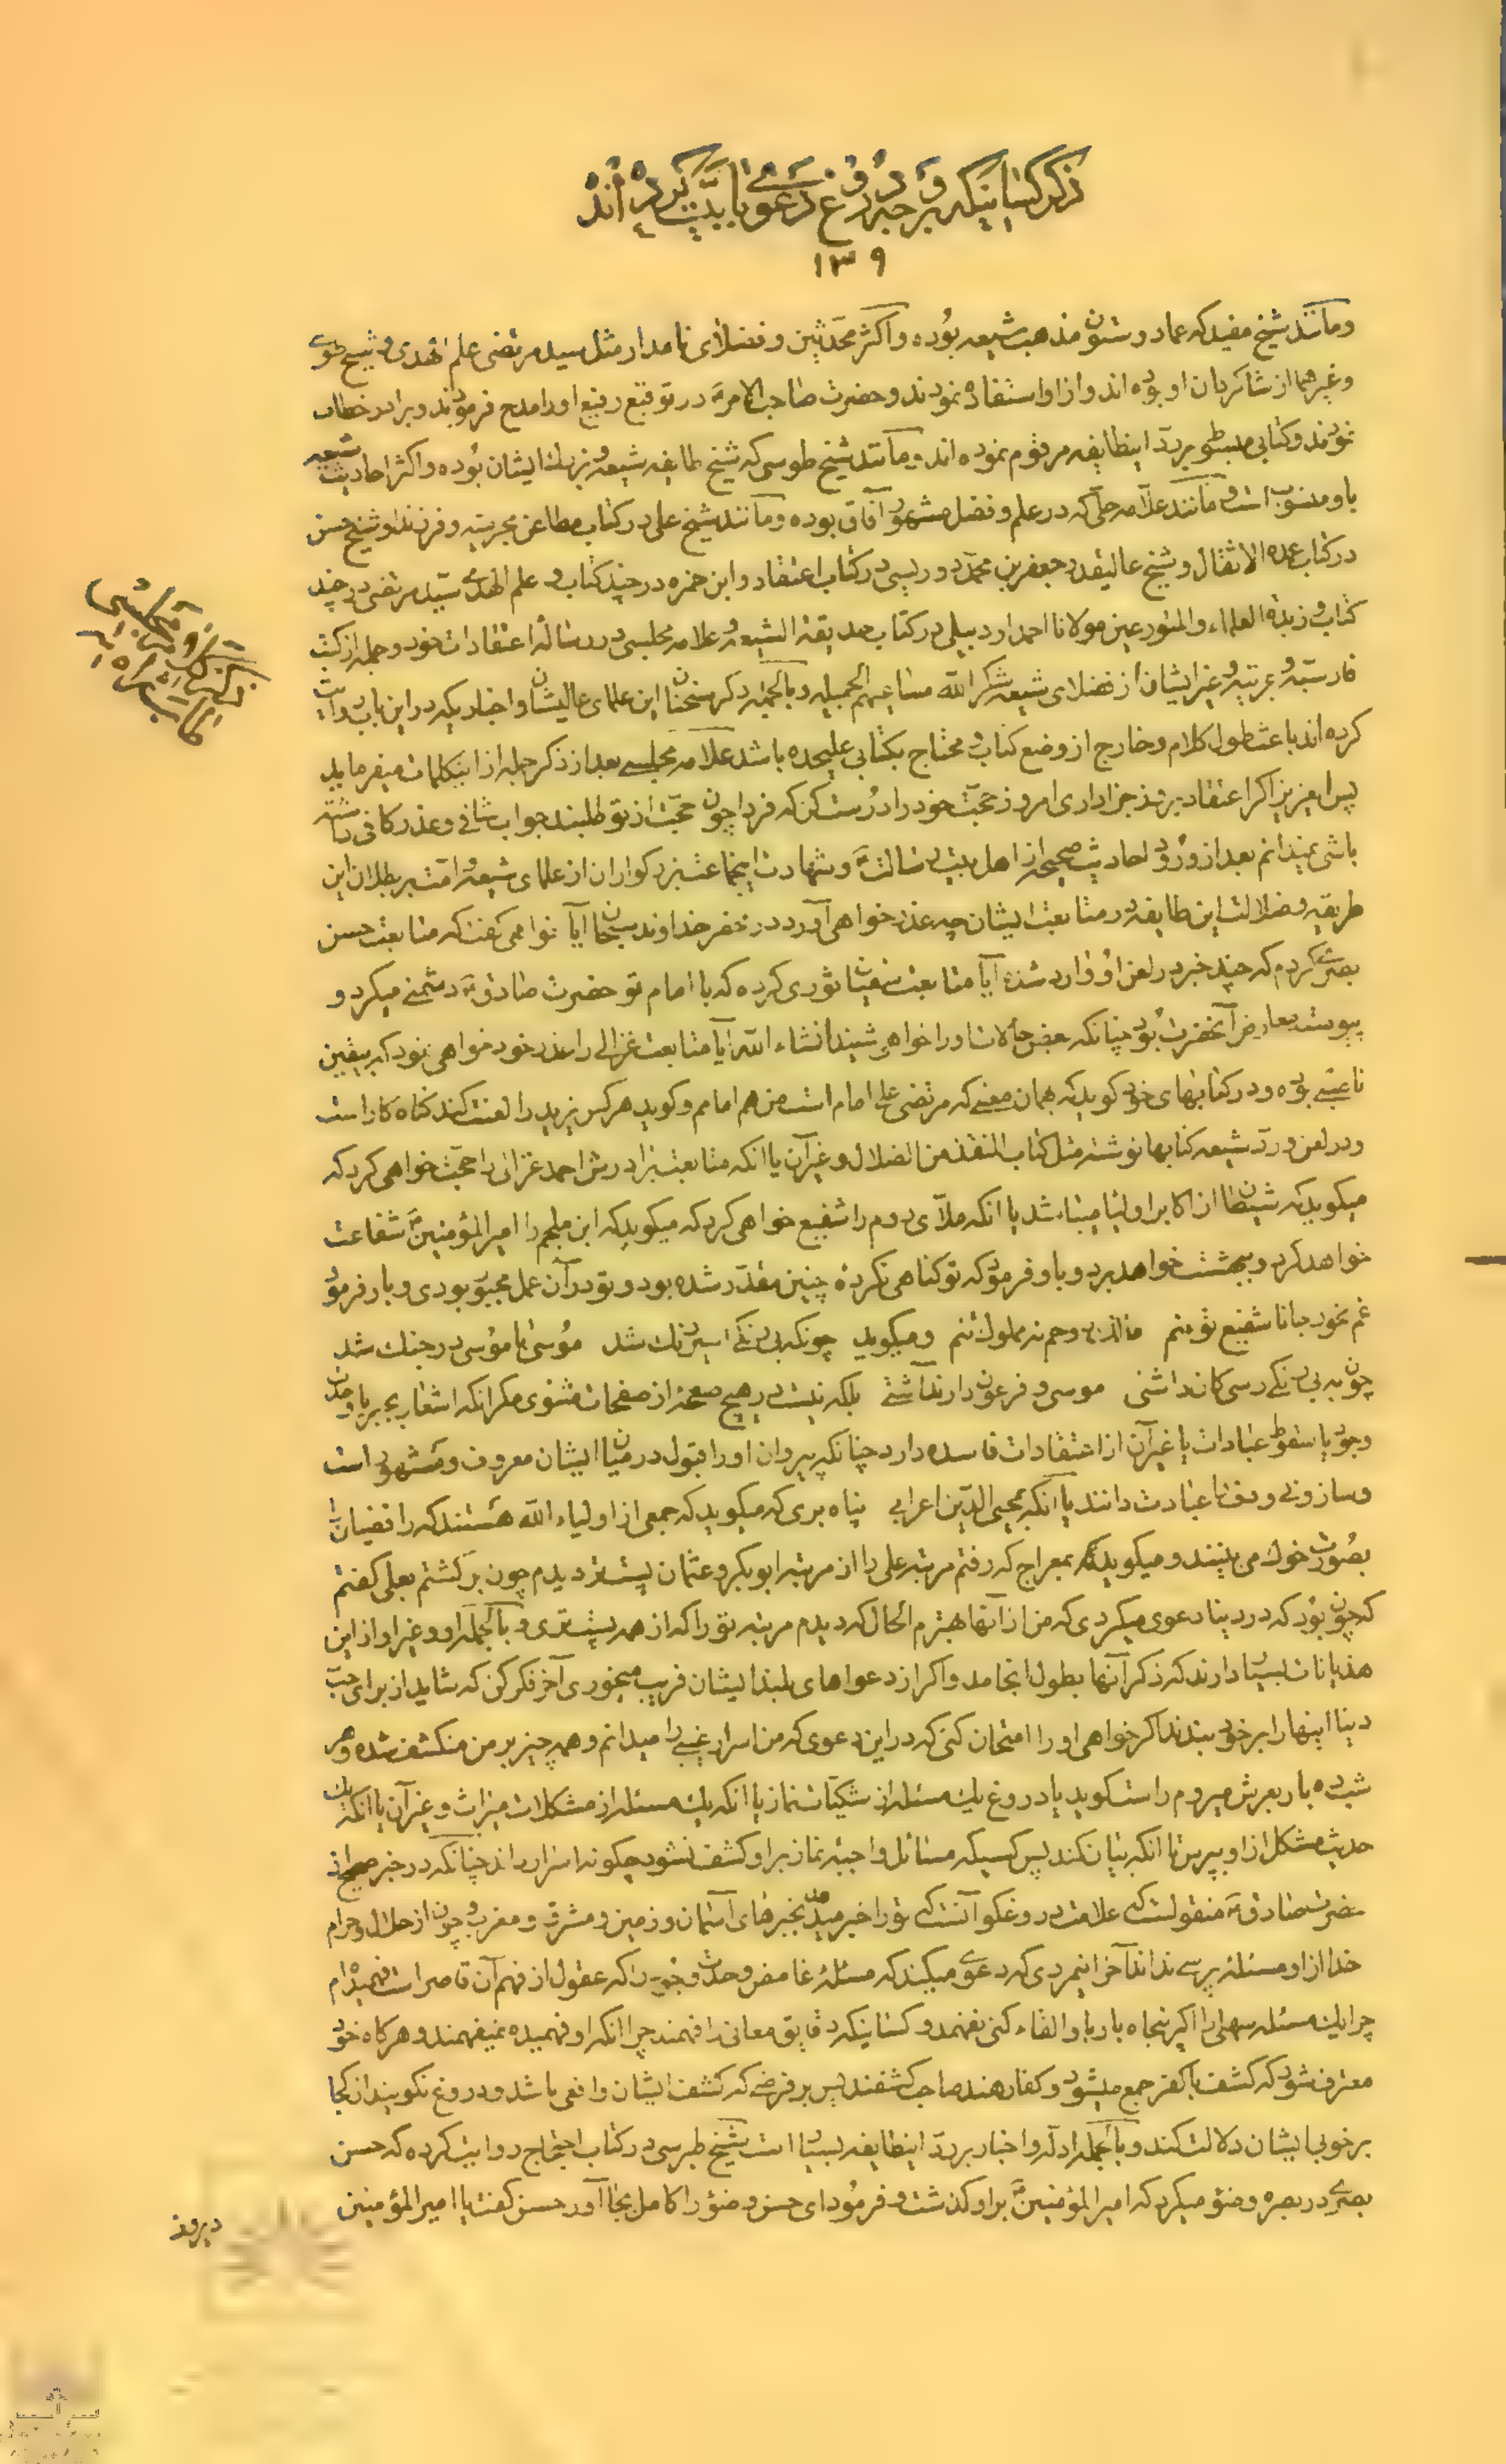 ذکر کسانیکه بر وجه دروغ دعوی بابیّت کرده‌اند
۱۳۹
ومانند شیخ مفید که عماد و ستون مذهب شیعه بوده و اکثر محدّثین و فضلای نامدار مثل سید مرتضی علم الهدی و شیخ طوسی
وغیرهما از شاکردان او بوده‌اند و از او استفاده نمودند و حضرت صاحب الامر در توقیع رفیع او را مدح فرمودند و برادر خطاب
نمودند و کتابی مبسوط بر ردّ اینطایفه مرقوم نموده‌اند و مانند شیخ طوسی که شیخ طایفه شیعه و بزرك ایشان بوده و اکثر احادیث شیعه
باو منسوب است و مانند علّامه حلّی که در علم و فضل مشهور آفاق بوده و مانند شیخ علی در کتاب مطاعن مجرمیه و فرزند او شیخ حسن
در کتاب عمده الاثقال و شیخ عالیقدر جعفر بن محمّد دوریستی در کتاب اعتقاد و ابن حمزه در چند کتاب و علم الهدی سیّد مرتضی در چند
کتاب و زبدة العلماء والمتورعین مولانا احمد اردبیلی در کتاب حدیقة الشیعه و علامه مجلسی در رسالهٔ اعتقادات خود و جمله از کتب
فارسیّه و عربیّه و غیر ایشان از فضلای شیعه شکر الله مساعیهم الجمیله و بالجمله ذکر سخنان این علمای عالیشان و اخباریکه در این باب روایت
کرده‌اند باعث طول کلام و خارج از وضع کتاب و محتاج بکتابی علیحده باشد علّامه مجلسی بعد از ذکر جمله از اینکلمات میفرماید
پس ایعزیز اکر اعتقاد بروز جزا داری امروز حجّت خود را درست کن که فردا چون حجّت از تو طلبند جواب شافی و عذر کافی داشته
باشی نمیدانم بعد از ورود احادیث صحیحه از اهل بیت رسالت و شهادت اینجماعت بزرکواران از علمای شیعه و امّت بر بطلان این
طریقه و ضلالت این طایفه در متابعت ایشان چه عذر خواهی آورد در نزد خداوند سبحان آیا خواهی کفت که متابعت حسن
بصری کردم که چند خبر در لعن او وارد شده آیا متابعت سفیان ثوری کرده که با امام تو حضرت صادق دشمنی میکرد و
پیوسته معارض آنحضرت بود چنانکه بعضی حالات او را خواهی شنید انشاء الله آیا متابعت غزالی را عذر خود خواهی نمود که بیقین
ناصبی بوده و در کتابهای خود کوید که بهمان معنی که مرتضی علی امام است من هم امامم و کوید هر کس یزید را لعنت کند کناه کار است
و در لعن و ردّ شیعه کتابها نوشته مثل کتاب المنقذ من الضلال و غیر آن یا انکه متابعت برادرش احمد غزالی را حجّت خواهی کرد که
میکوید که شیطان از اکابر اولیا میباشد یا انکه ملّای روم را شفیع خواهی کرد که میکوید که ابن ملجم را امیرالمؤمنین شفاعت
خواهد کرد و ببهشت خواهد برد و باو فرمود که تو کناهی نکردهٔ چنین مقدّر شده بود و تو در آن عمل مجبور بودی و باز فرمود
غم مخور جانا شفیع تو منم مالك روحم نه مملوك تنم و میکوید چونکه بی رنکی اسیر رنك شد موسی با موسی در جنك شد
چون به بی رنکی رسی کان داشتی موسی و فرعون دارند آشتی بلکه نیست در هیچ صفحهٔ از صفحات مثنوی مکر انکه اشعار بجبر یا وحدت
وجود یا سقوط عبادات یا غیر آن از اعتقادات فاسده دارد چنانکه پیروان او را قبول در میان ایشان معروف و مشهور است
و ساز و نی و دف را عبادت دانند یا آنکه بمحیی الدّین اعرابی پناه بری که میکوید که جمعی از اولیاء الله هستند که رافضیان را
بصورت خوك می‌بینند و میکوید که بمعراج که رفتم مرتبه علی را از مرتبه ابوبکر و عثمان پست‌تر دیدم چون برکشتم بعلی کفتم
که چون بود که در دنیا دعوی میکردی که من از آنها بهترم الحال که دیدم مرتبه تو را که از همه پست‌تری و بالجمله او و غیر او از این
هذیانات بسیار دارند که ذکر آنها بطول انجامد و اکر از دعواهای بلند ایشان فریب میخوری آخر فکر کن که شاید از برای حبّ
دنیا اینها را بر خود بندند اکر خواهی او را امتحان کنی که در این دعوی که من اسرار غیبی را میدانم و همه چیز بر من منکشف شده و هر
شب ده بار بعرش میروم راست کوید یا دروغ یك مسئله از شکیّات نماز یا انکه یك مسئله از مشکلات میراث و غیر آن یا انکه یك
حدیث مشکل از او بپرس تا انکه بیان کند پس کسیکه مسائل واجبه نماز بر او کشف نشود چکونه اسرار داند چنانکه در خبر صحیح از
حضرت صادق منقولست که علامت دروغکو آنست که تو را خبر میدهد بخبرهای آسمان و زمین و مشرق و مغرب و چون از حلال و حرام
خدا از او مسئله پرسی نداند آخر اینمردی که دعوی میکند که مسئلهٔ غامض وحدت وجود را که عقول از فهم آن قاصر است فهمیده‌ام
چرا یك مسئله سهلی را اکر پنجاه بار باو القاء کنی نفهمد و کسانیکه دقایق معانی را فهمند چرا انکه او فهمیده نمیفهمند و هرکاه خود
معترف شود که کشف با کفر جمع میشود و کفار هند صاحب کشفند پس بر فرضی که کشف ایشان واقعی باشد و دروغ نکویند از کجا
بر خوبی ایشان دلالت کند و بالجمله ادلّه و اخبار بر ردّ اینطایفه بسیار است شیخ طبرسی در کتاب احتجاج روایت کرده که حسن
بصری در بصره وضو میکرد که امیرالمؤمنین بر او کذشت و فرمود ای حسن وضو را کامل بجا آور حسن کفت یا امیرالمؤمنین
دیروز